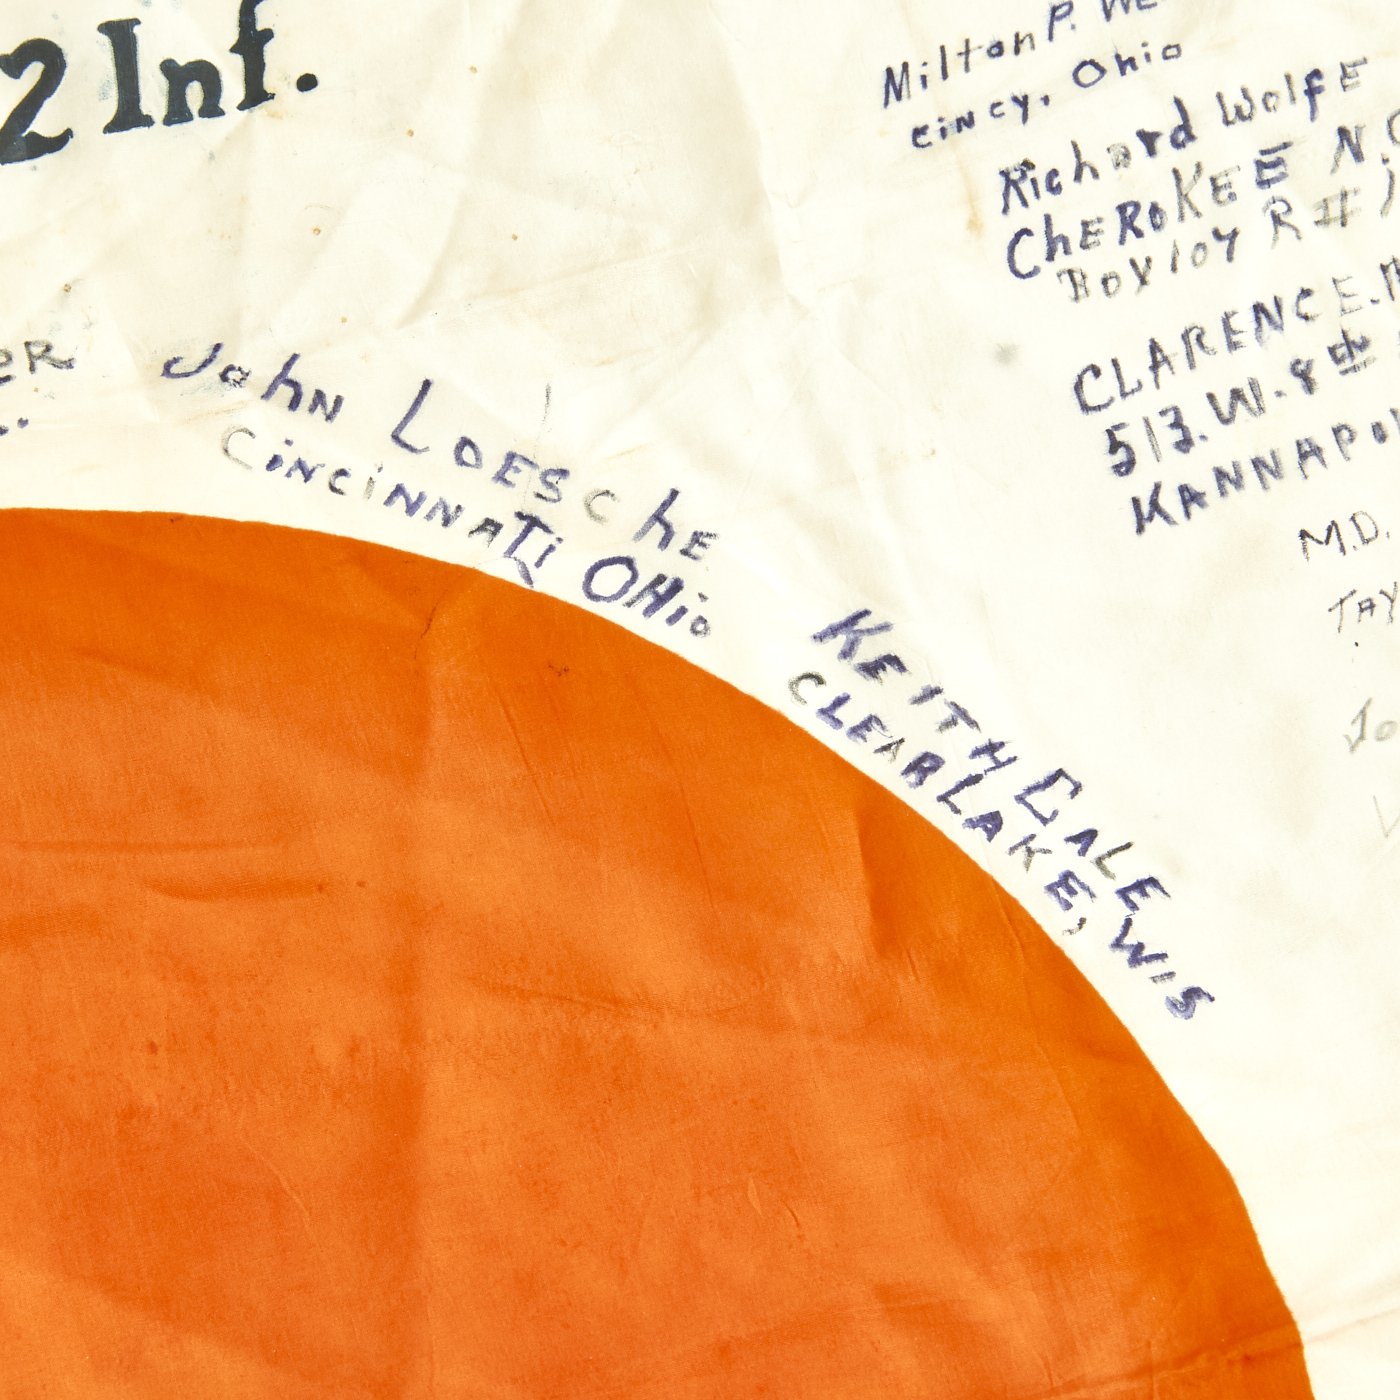 2 Inf.
Milton P. WE
CiNCY, Ohio
Richard WolfE
ChEROKEE N.C
Box 104 R#1
CLARENCE.
513.W.8th
KANNAPO
M.D.
TAY
Jo
ER
John LOESChE
CiNCiNNATi OHio
KEITH DALE
CLEARLAKE, WIS